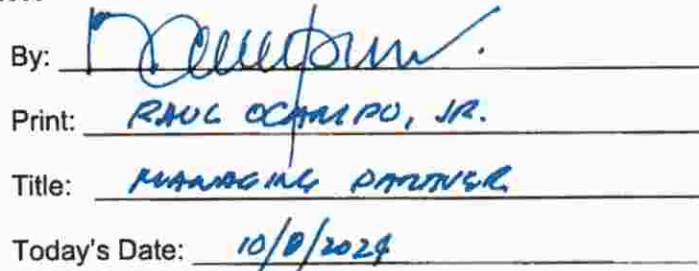 By:
Print: RAUL OCAMPO, JR.
Title: MANAGING PARTNER
Today's Date: 10/8/2024